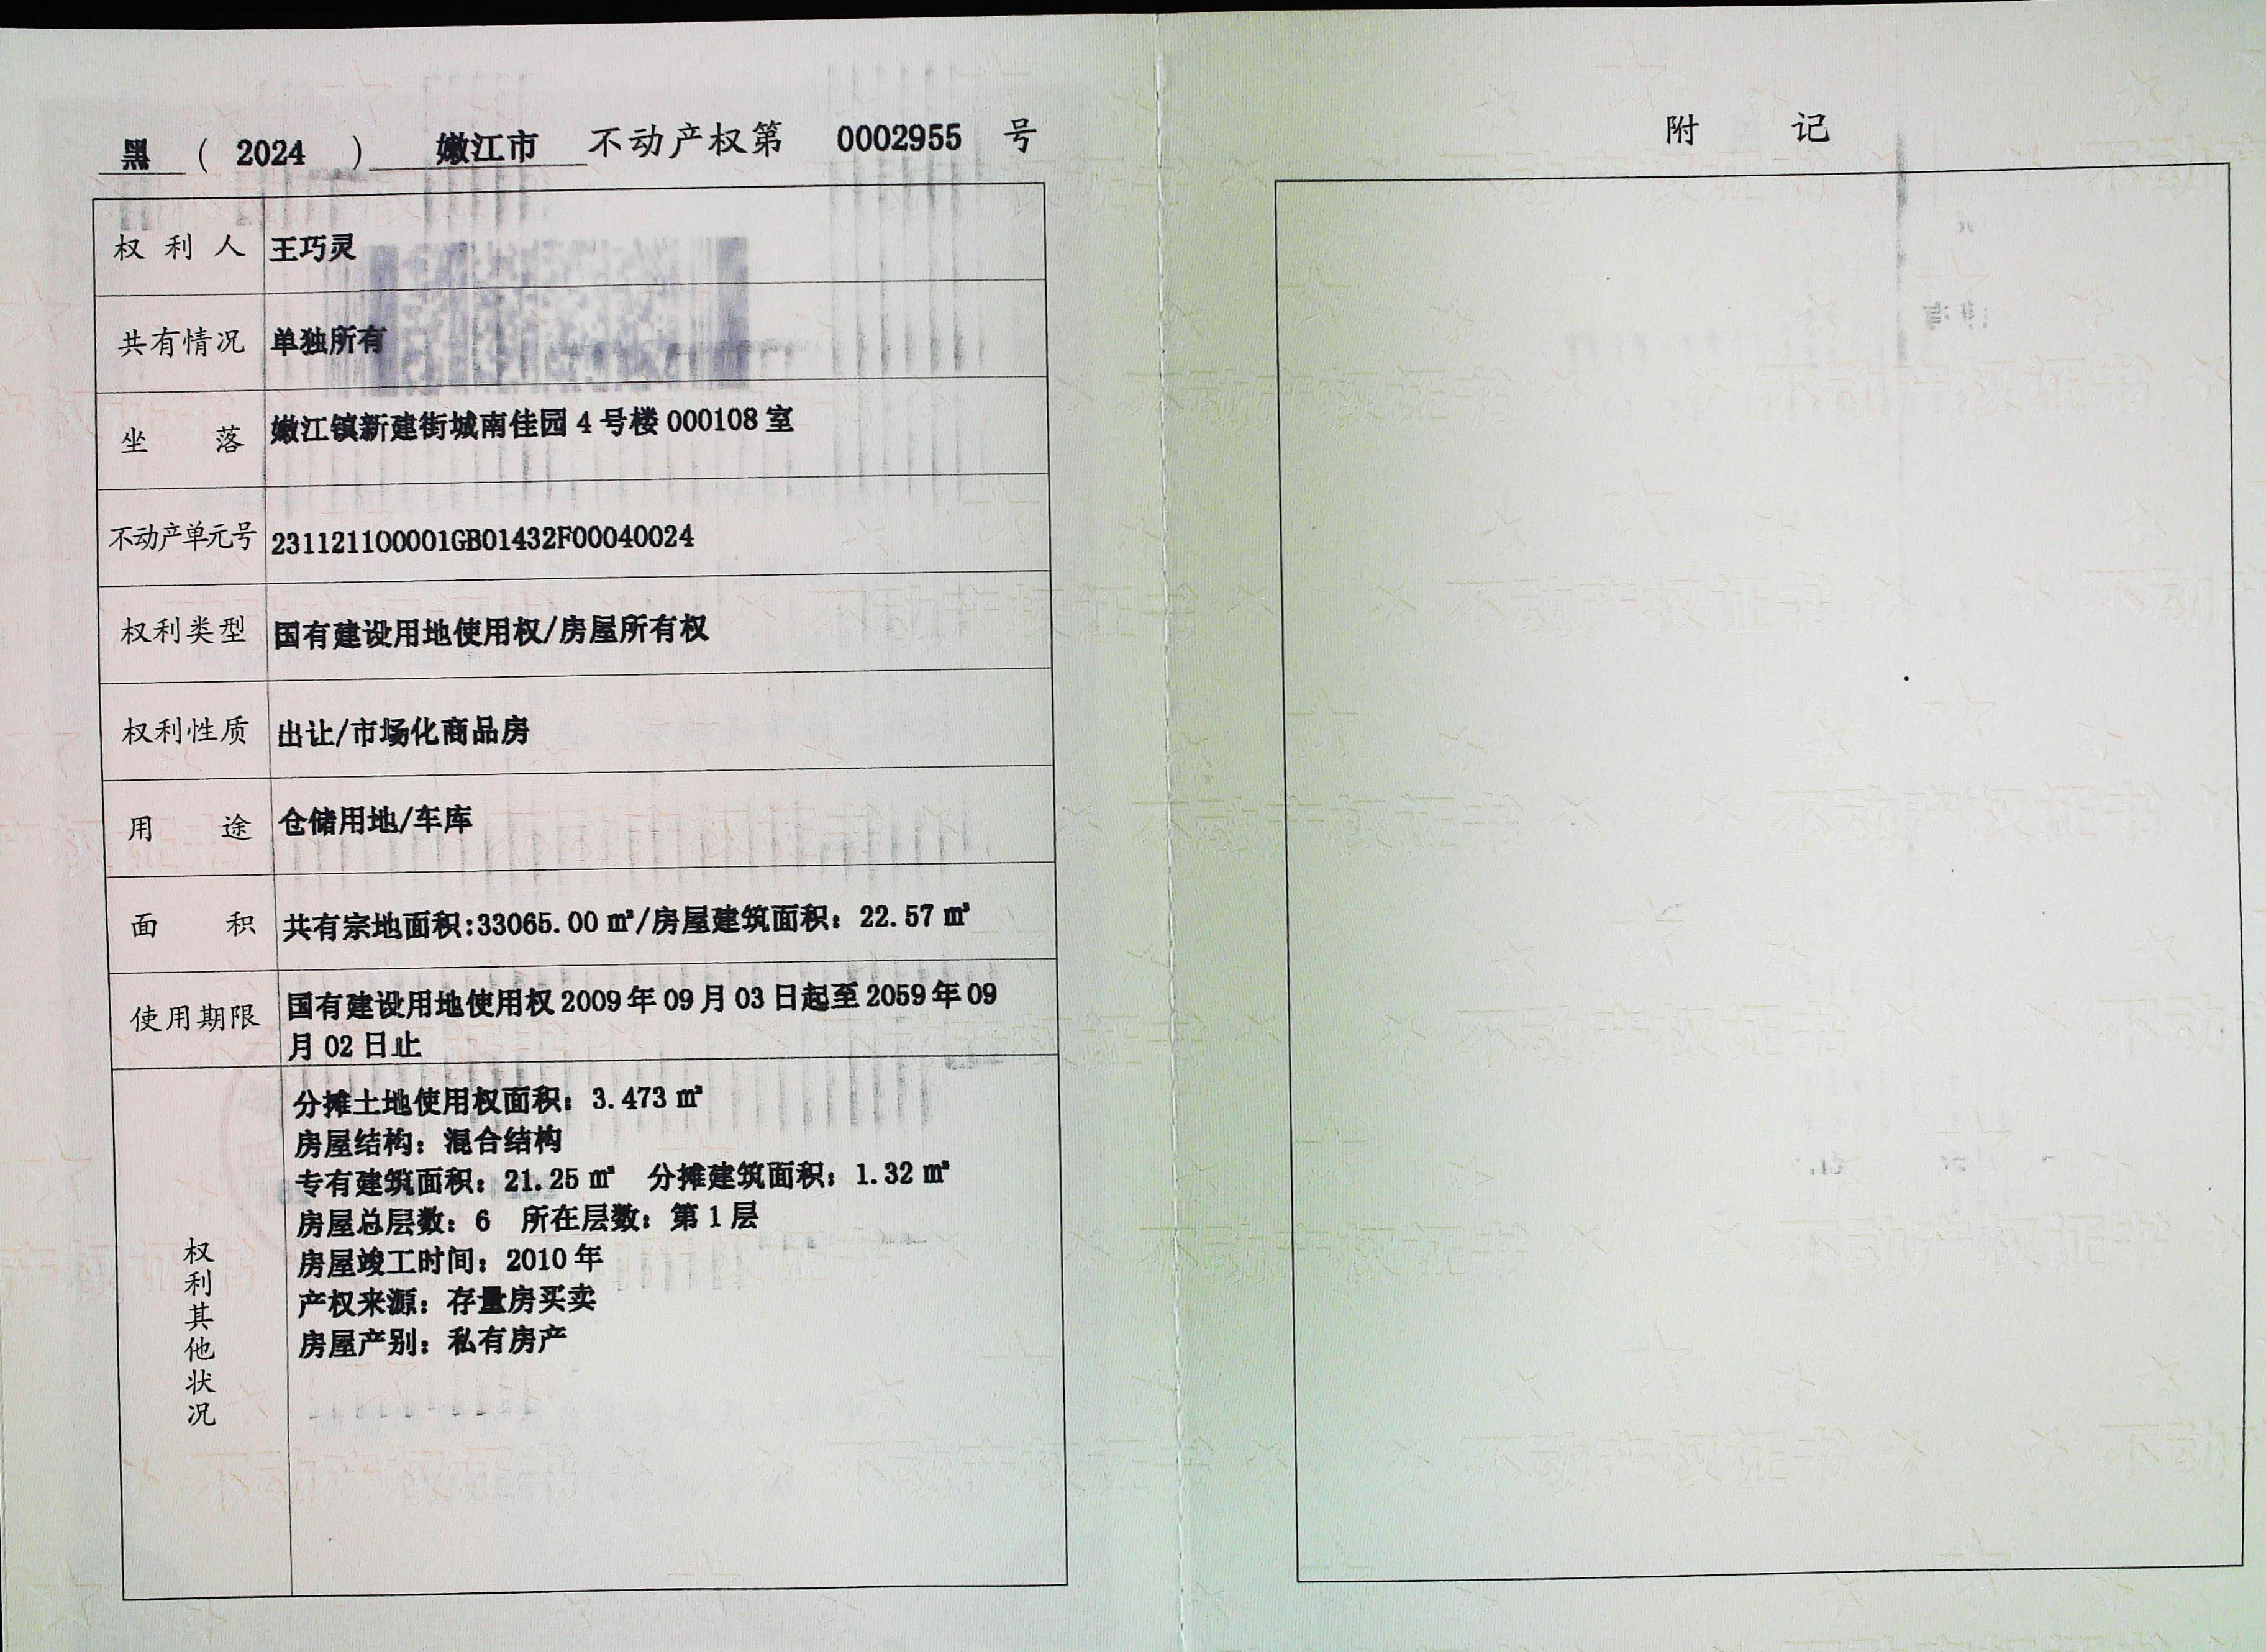 黑 ( 2024 ) 嫩江市 不动产权第 0002955 号
权利人 王巧灵
共有情况 单独所有
坐落 嫩江镇新建街城南佳园 4 号楼 000108 室
不动产单元号 231121100001GB01432F00040024
权利类型 国有建设用地使用权/房屋所有权
权利性质 出让/市场化商品房
用途 仓储用地/车库
面积 共有宗地面积:33065.00 ㎡/房屋建筑面积: 22.57 ㎡
使用期限 国有建设用地使用权 2009 年 09 月 03 日起至 2059 年 09
月 02 日止
权利其他状况
分摊土地使用权面积: 3.473 ㎡
房屋结构: 混合结构
专有建筑面积: 21.25 ㎡ 分摊建筑面积: 1.32 ㎡
房屋总层数: 6 所在层数: 第 1 层
房屋竣工时间: 2010 年
产权来源: 存量房买卖
房屋产别: 私有房产
附记